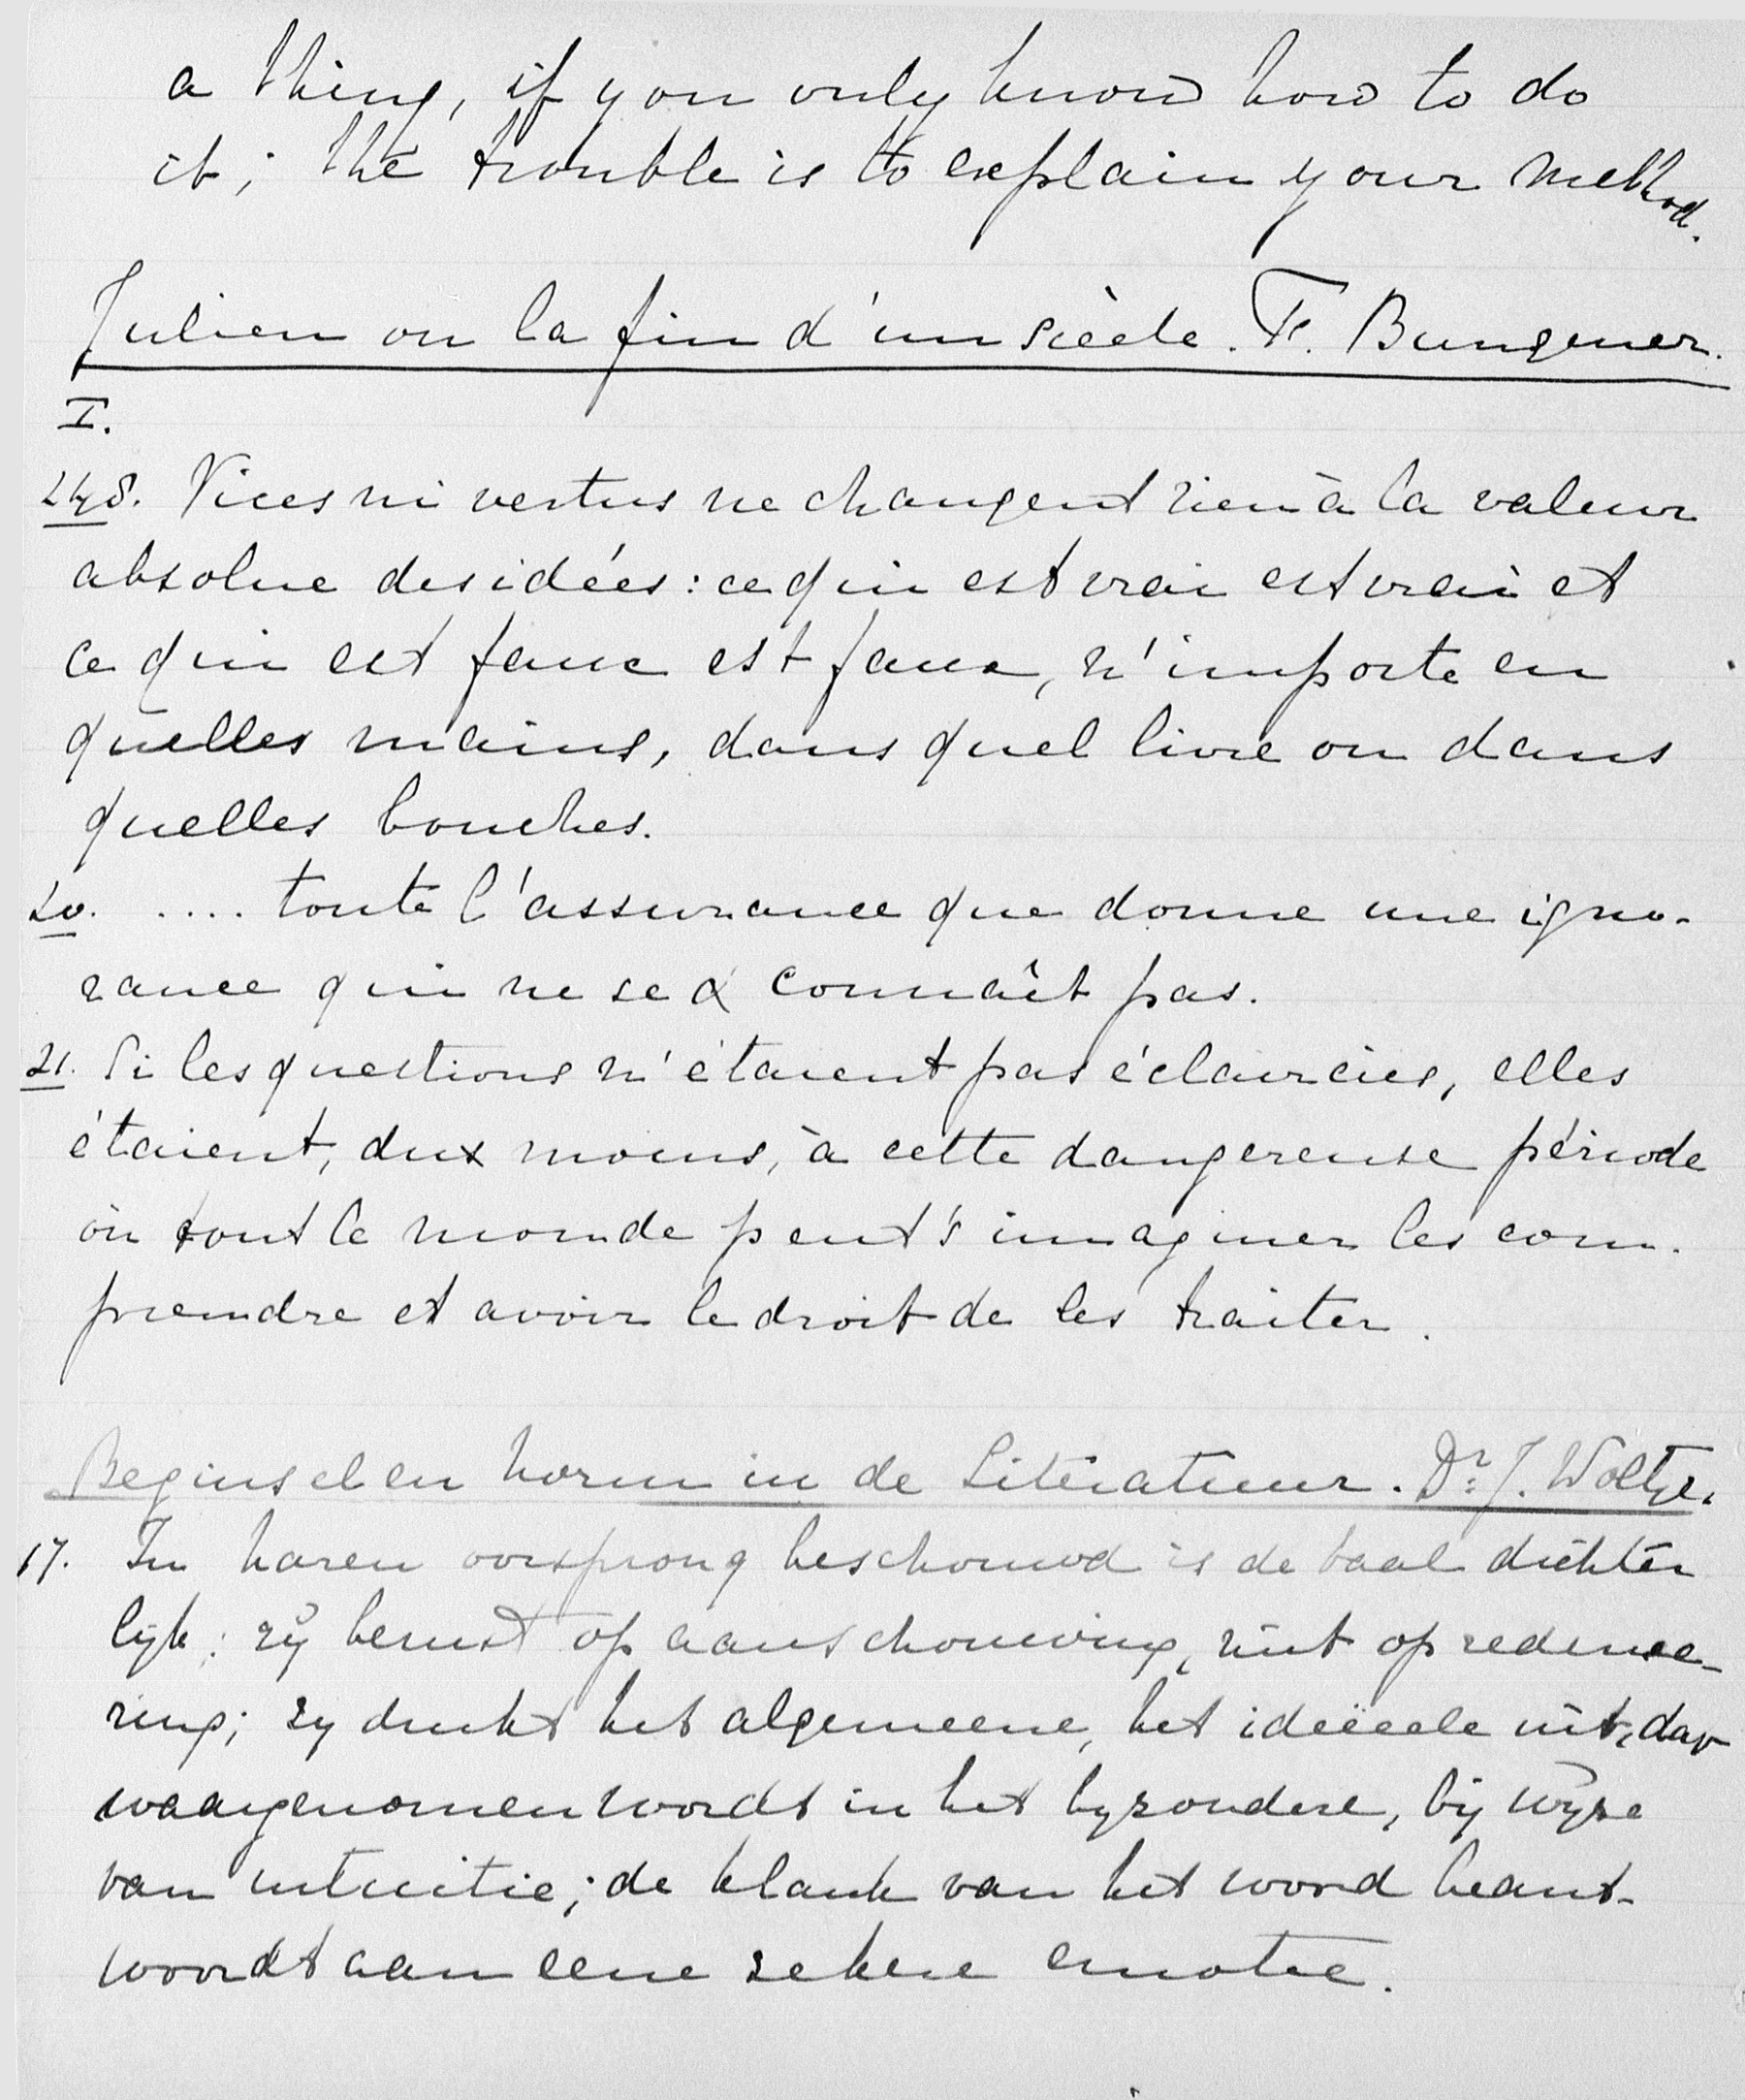 a thing, if you only know how to do
it; the trouble is to explain your method.
Julien ou la fin d'un siècle. F. Bungener.
I.
248. Vices ni vertus ne changent rien à la valeur
absolue des idées: ce qui est vrai est vrai et
ce qui est faux est faux, n'importe en
quelles mains, dans quel livre ou dans
quelles bouches.
20. .... toute l'assurance que donne une igno-
rance qui ne se connaît pas.
21. Si les questions n'étaient pas éclaircies, elles
étaient, du moins, à cette dangereuse période
où tout le monde peut s'imaginer les com-
prendre et avoir le droit de les traiter.
Beginsel en norm in de Literatuur. Dr. J. Woltjer.
17. In haren oorsprong beschouwd is de taal dichter
lijk: zij berust op aanschouwing, niet op redenee-
ring; zij drukt het algemeene, het ideëele uit, dat
waargenomen wordt in het byzondere, bij wijze
van intuitie; de klank van het woord beant-
woordt aan eene zekere emotie.